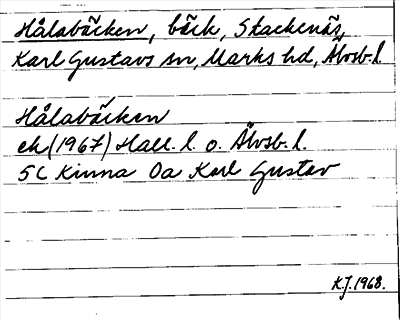 Hålabäcken, bäck, Stackenäs,
Karl Gustavs sn, Marks hd, Älvsb. l.
Hålabäcken
ek (1967) Hall. l. o. Älvsb. l.
5C Kinna 0a Karl Gustav
K.J. 1968.